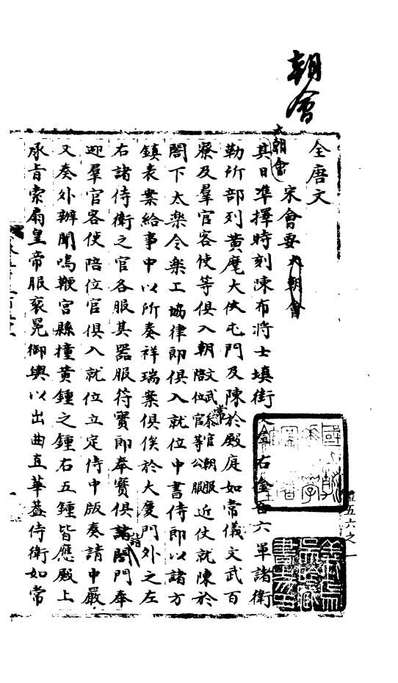 朝會
全唐文
宋會要 大朝會
大朝會
其日準擇時刻陳布將士填街左金吾右金吾六軍諸衛
勒所部列黃麾大仗屯門及陳於殿庭如常儀文武百
寮及羣官客使等俱入朝文武常參官朝服陪位官等公服近仗就陳於
閤下太樂令樂工協律郎俱入就位中書侍郎以諸方
鎮表案給事中以所奏祥瑞案俱俟於大慶門外之左
右諸侍衛之官各服其器服符寶郎奉寶俱詣閤門奉
迎羣官客使陪位官俱入就位立定侍中版奏請中嚴
又奏外辦聞鳴鞭宮縣撞黃鍾之鍾右五鍾皆應殿上
承旨索扇皇帝服袞冕御輿以出曲直華蓋侍衛如常
禮五六之一